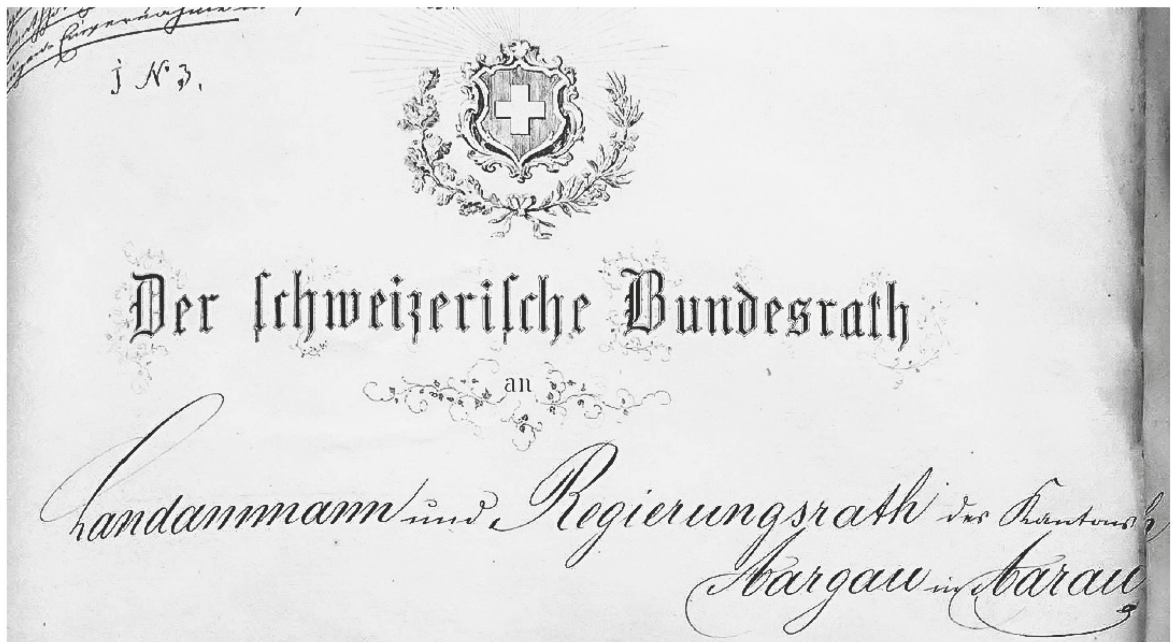 j N° 3.
Der schweizerische Bundesrath
an
Landammann und Regierungsrath des Kantons
Aargau in Aarau